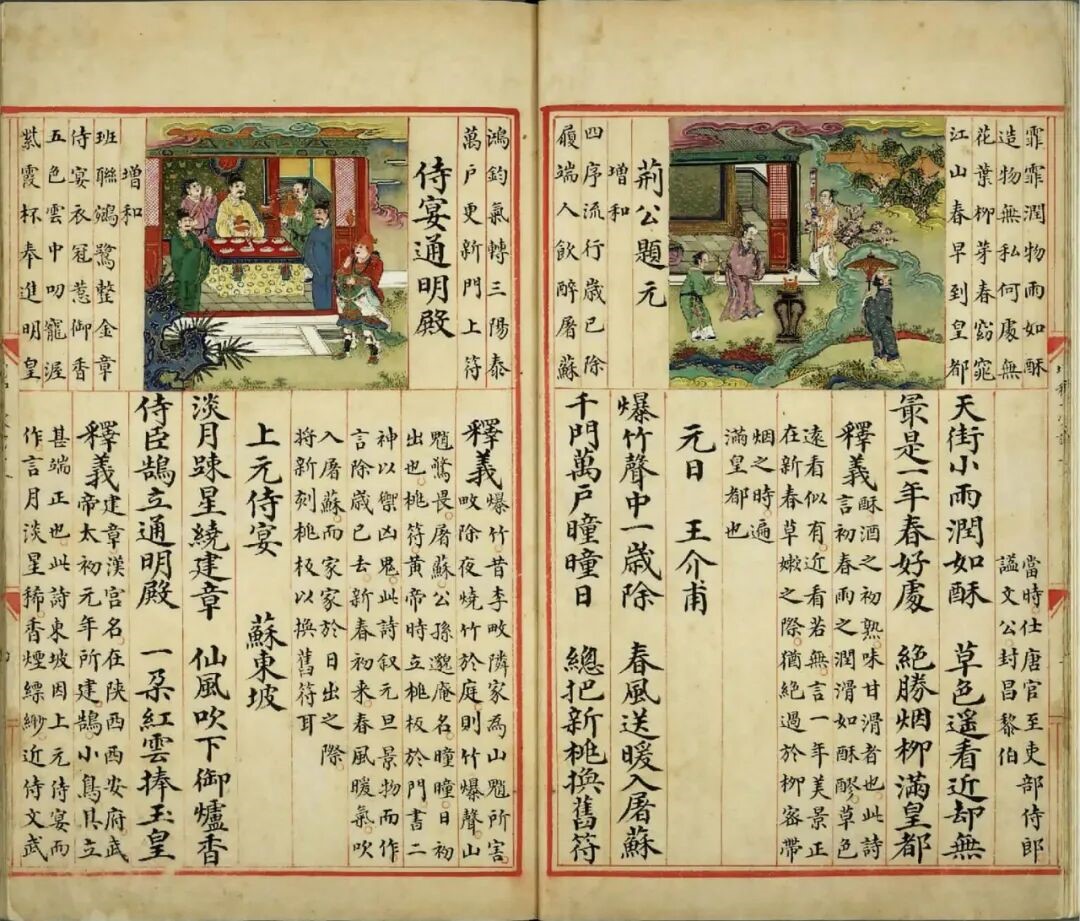 霏霏潤物雨如酥
造物無私何處無
花葉柳芽春窈窕
江山春早到皇都
荊公題元
增和
四序流行歲已除
履端人飲醉屠蘇
當時仕唐官至吏部侍郎
謚文公封昌黎伯
天街小雨潤如酥　草色遥看近却無
最是一年春好處　絕勝烟柳滿皇都
釋義酥酒之初熟味甘滑者也此詩
言初春雨之潤滑如酥醪草色
遠看似有近看若無言一年美景正
在新春草嫩之際猶絕過於柳密帶
烟之時遍
滿皇都也
元日　王介甫
爆竹聲中一歲除　春風送暖入屠蘇
千門萬戶曈曈日　總把新桃換舊符
鴻鈞氣轉三陽泰
萬户更新門上符
侍宴通明殿
增和
班聯鴻鷺整金章
侍宴衣冠惹御香
五色雲中叨寵渥
紫霞杯奉進明皇
釋義爆竹昔李畋隣家為山魈所害
畋除夜燒竹於庭則竹爆聲山
魈驚畏屠蘇公孫邈庵名曈曈日初
出也桃符黃帝時立桃板於門書二
神以禦凶鬼此詩叙元旦景物而作
言除歲已去新春初来春風暖氣吹
入屠蘇而家家於日出之際
將新刻桃板以換舊符耳
上元侍宴　蘇東坡
淡月踈星繞建章　仙風吹下御爐香
侍臣鵠立通明殿　一朶紅雲捧玉皇
釋義建章漢宮名在陝西西安府武
帝太初元年所建鵠小鳥其立
甚端正也此詩東坡因上元侍宴而
作言月淡星稀香煙縹緲近侍文武